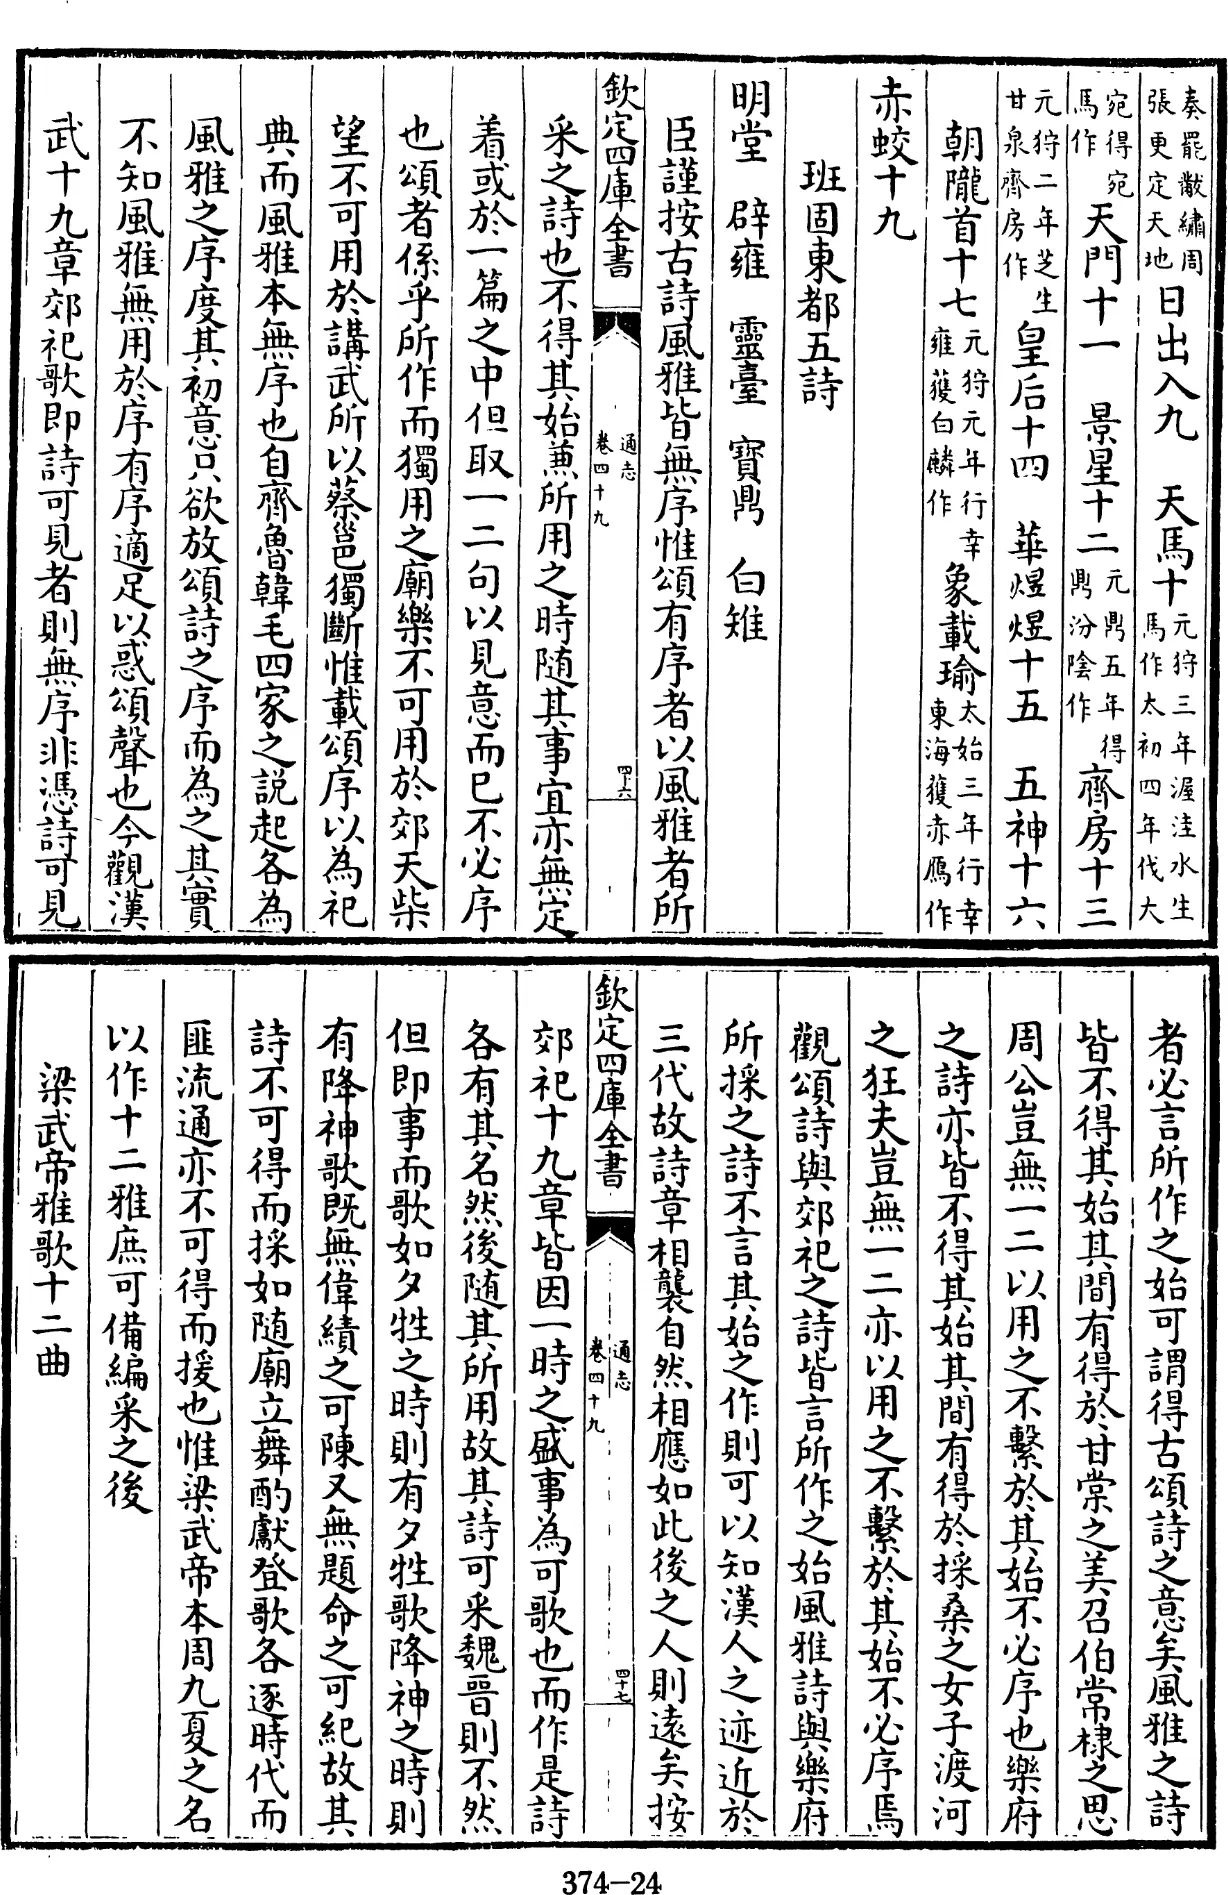 奏罷黻繡周張更定天地日出入九　天馬十元狩三年渥洼水生馬作太初四年伐大
宛得宛馬作天門十一　景星十二元鼎五年得鼎汾陰作齊房十三
元狩二年芝生甘泉齊房作皇后十四　華煜煜十五　五神十六
朝隴首十七元狩元年行幸雍獲白麟作象載瑜太始三年行幸東海獲赤鴈作
赤蛟十九
班固東都五詩
明堂　辟雍　靈臺　寳鼎　白雉
臣謹按古詩風雅皆無序惟頌有序者以風雅者所
欽定四庫全書　通志卷四十九　四十六
采之詩也不得其始兼所用之時隨其事宜亦無定
着或於一篇之中但取一二句以見意而已不必序
也頌者係乎所作而獨用之廟樂不可用於郊天柴
望不可用於講武所以蔡邕獨斷惟載頌序以為祀
典而風雅本無序也自齊魯韓毛四家之説起各為
風雅之序度其初意只欲放頌詩之序而為之其實
不知風雅無用於序有序適足以惑頌聲也今觀漢
武十九章郊祀歌即詩可見者則無序非憑詩可見
者必言所作之始可謂得古頌詩之意矣風雅之詩
皆不得其始其間有得於甘棠之美召伯常棣之思
周公豈無一二以用之不繫於其始不必序也樂府
之詩亦皆不得其始其間有得於採桑之女子渡河
之狂夫豈無一二亦以用之不繫於其始不必序焉
觀頌詩與郊祀之詩皆言所作之始風雅詩與樂府
所採之詩不言其始之作則可以知漢人之迹近於
三代故詩章相襲自然相應如此後之人則遠矣按
欽定四庫全書　通志卷四十九　四十七
郊祀十九章皆因一時之盛事為可歌也而作是詩
各有其名然後隨其所用故其詩可采魏晉則不然
但即事而歌如夕牲之時則有夕牲歌降神之時則
有降神歌既無偉績之可陳又無題命之可紀故其
詩不可得而採如隨廟立舞酌獻登歌各逐時代而
匪流通亦不可得而援也惟梁武帝本周九夏之名
以作十二雅庶可備編采之後
梁武帝雅歌十二曲
374-24